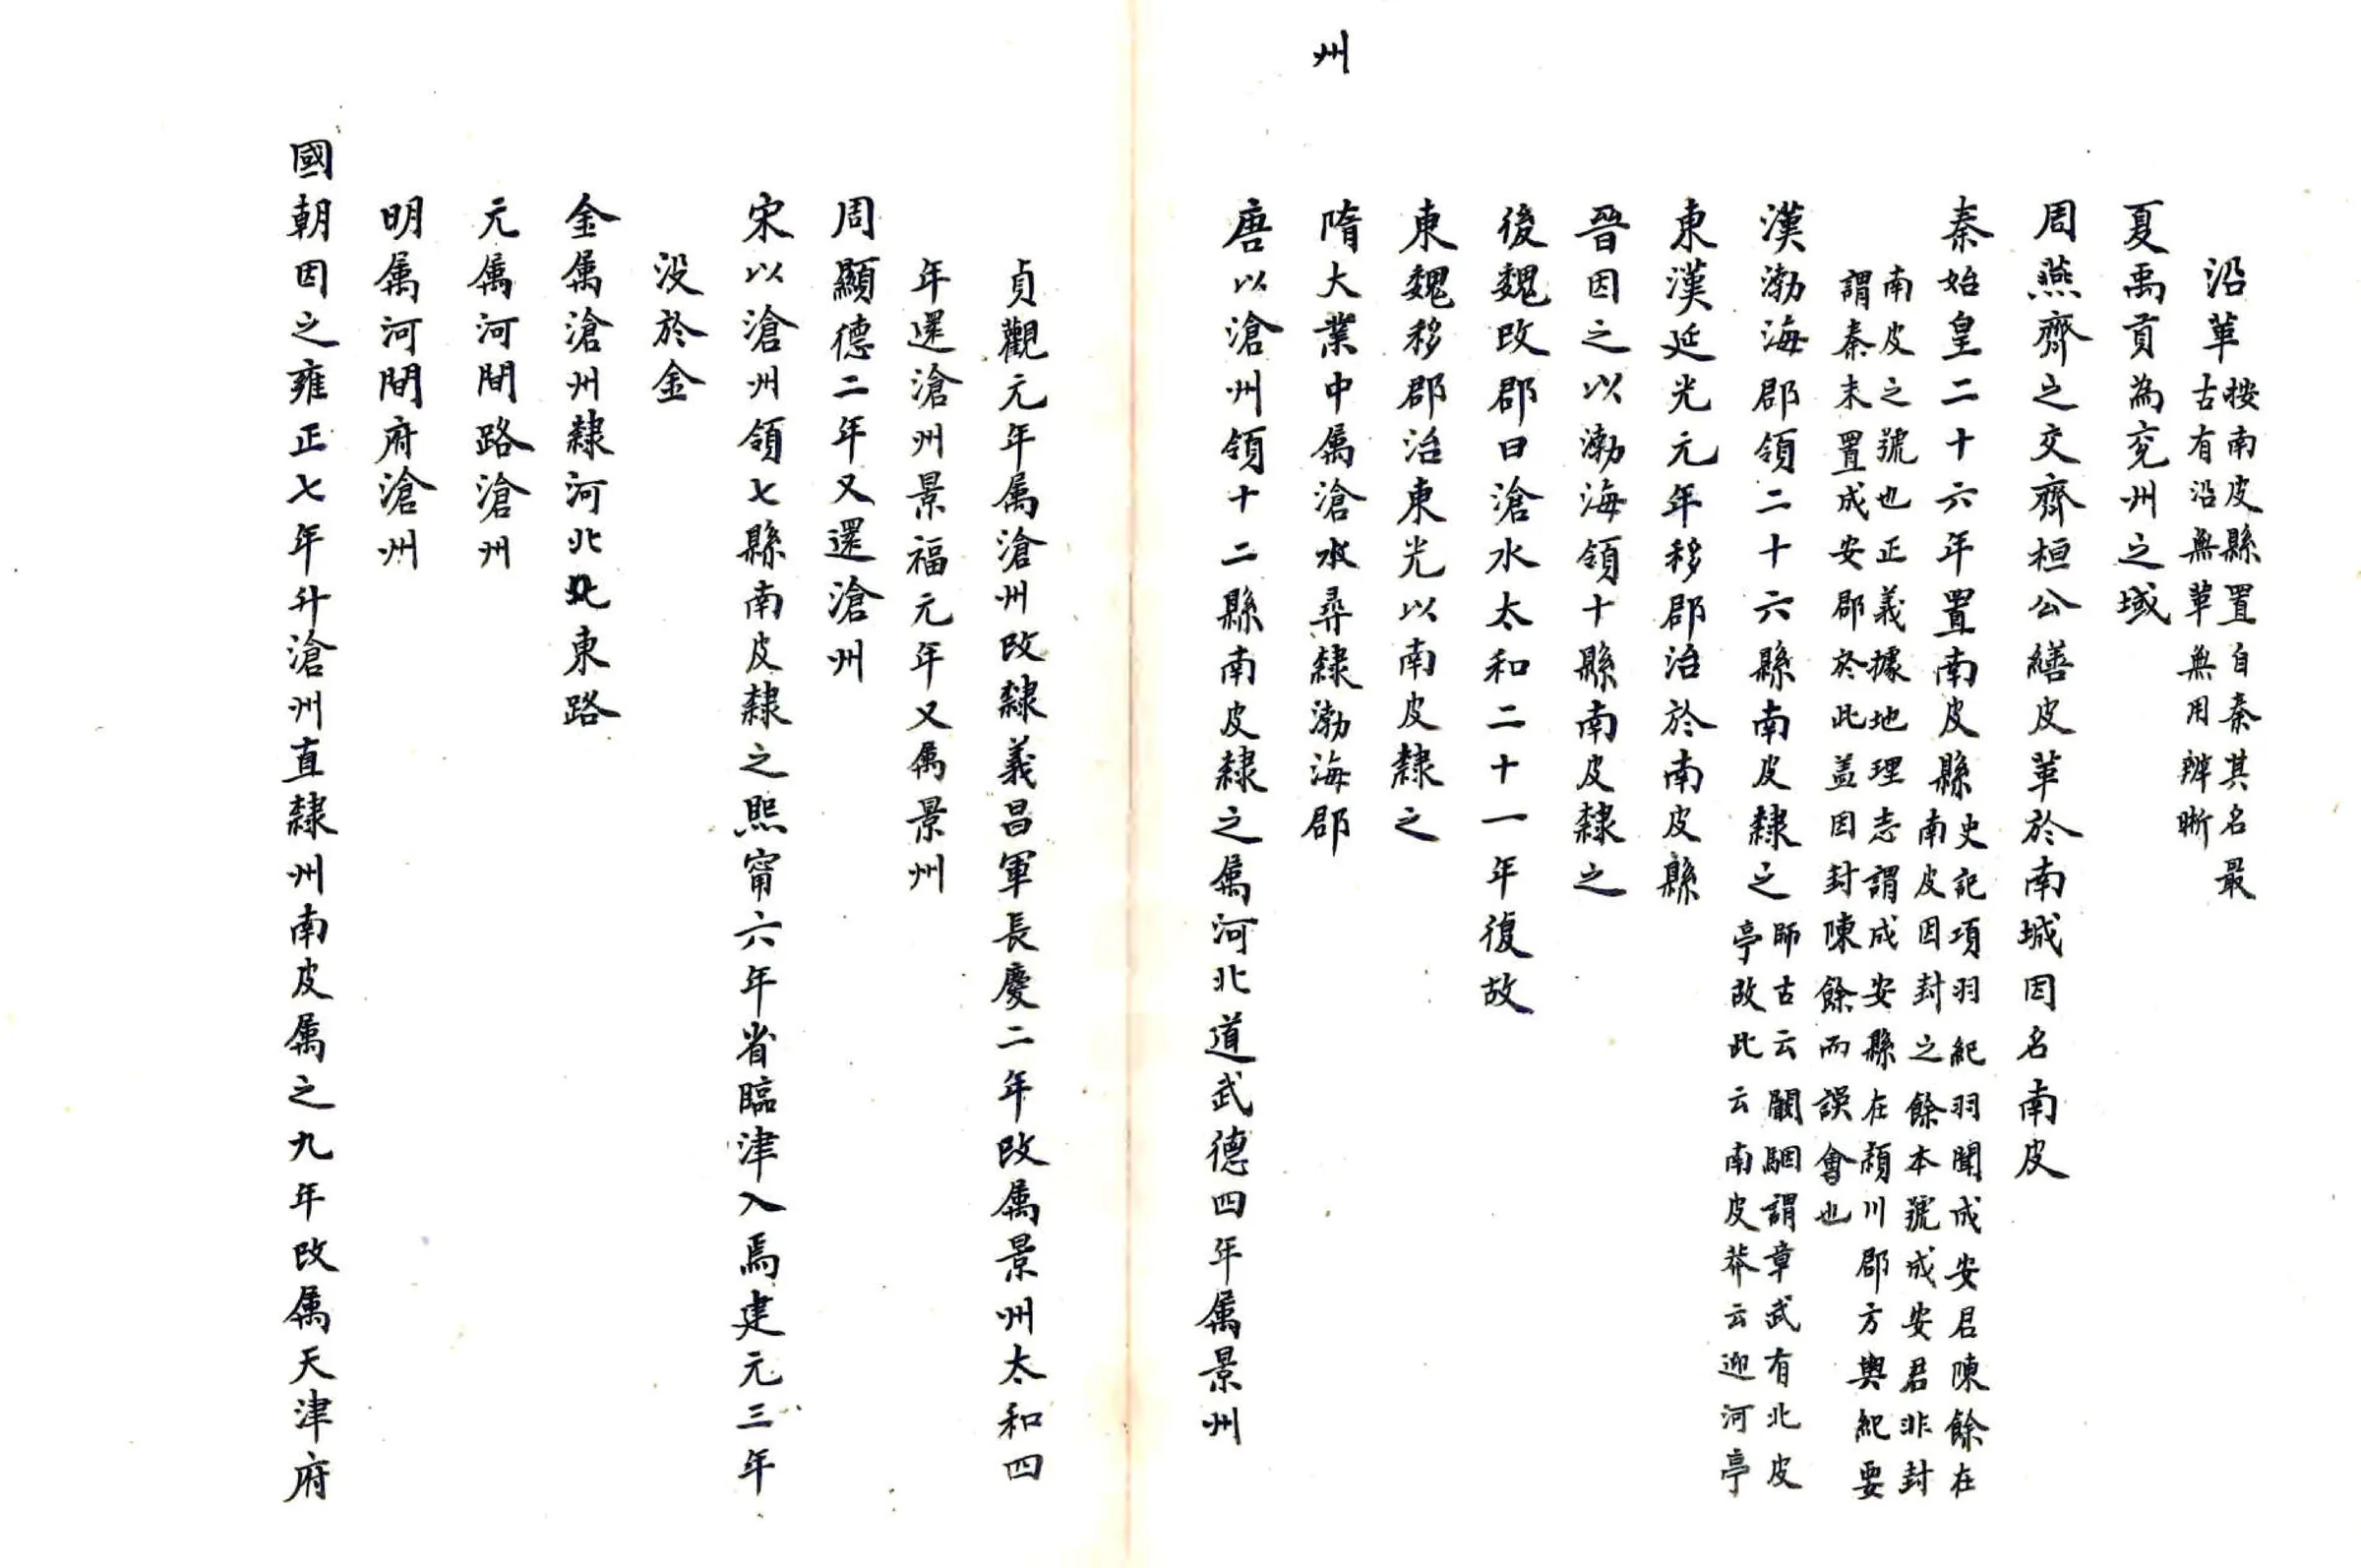 沿革按南皮縣置自秦其名最
古有沿無革無用辨晰
夏禹貢為兖州之域
周燕齊之交齊桓公繕皮革於南城因名南皮
秦始皇二十六年置南皮縣史記項羽紀羽聞成安君陳餘在
南皮因封之餘本號成安君非封
南皮之號也正義據地理志謂成安縣在頴川郡方輿紀要
謂秦末置成安郡於此盖因封陳餘而誤會也
漢渤海郡領二十六縣南皮隸之師古云闞駰謂章武有北皮
亭故此云南皮莽云迎河亭
東漢延光元年移郡治於南皮縣
晉因之以渤海領十縣南皮隸之
後魏改郡曰滄水太和二十一年復故
東魏移郡治東光以南皮隸之
隋大業中属滄水尋隸渤海郡
州
唐以滄州領十二縣南皮隸之属河北道武德四年属景州
貞觀元年属滄州改隸義昌軍長慶二年改属景州太和四
年還滄州景福元年又属景州
周顯德二年又還滄州
宋以滄州領七縣南皮隸之熈甯六年省臨津入焉建元三年
没於金
金属滄州隸河北北東路
元属河間路滄州
明属河間府滄州
國朝因之雍正七年升滄州直隸州南皮属之九年改属天津府